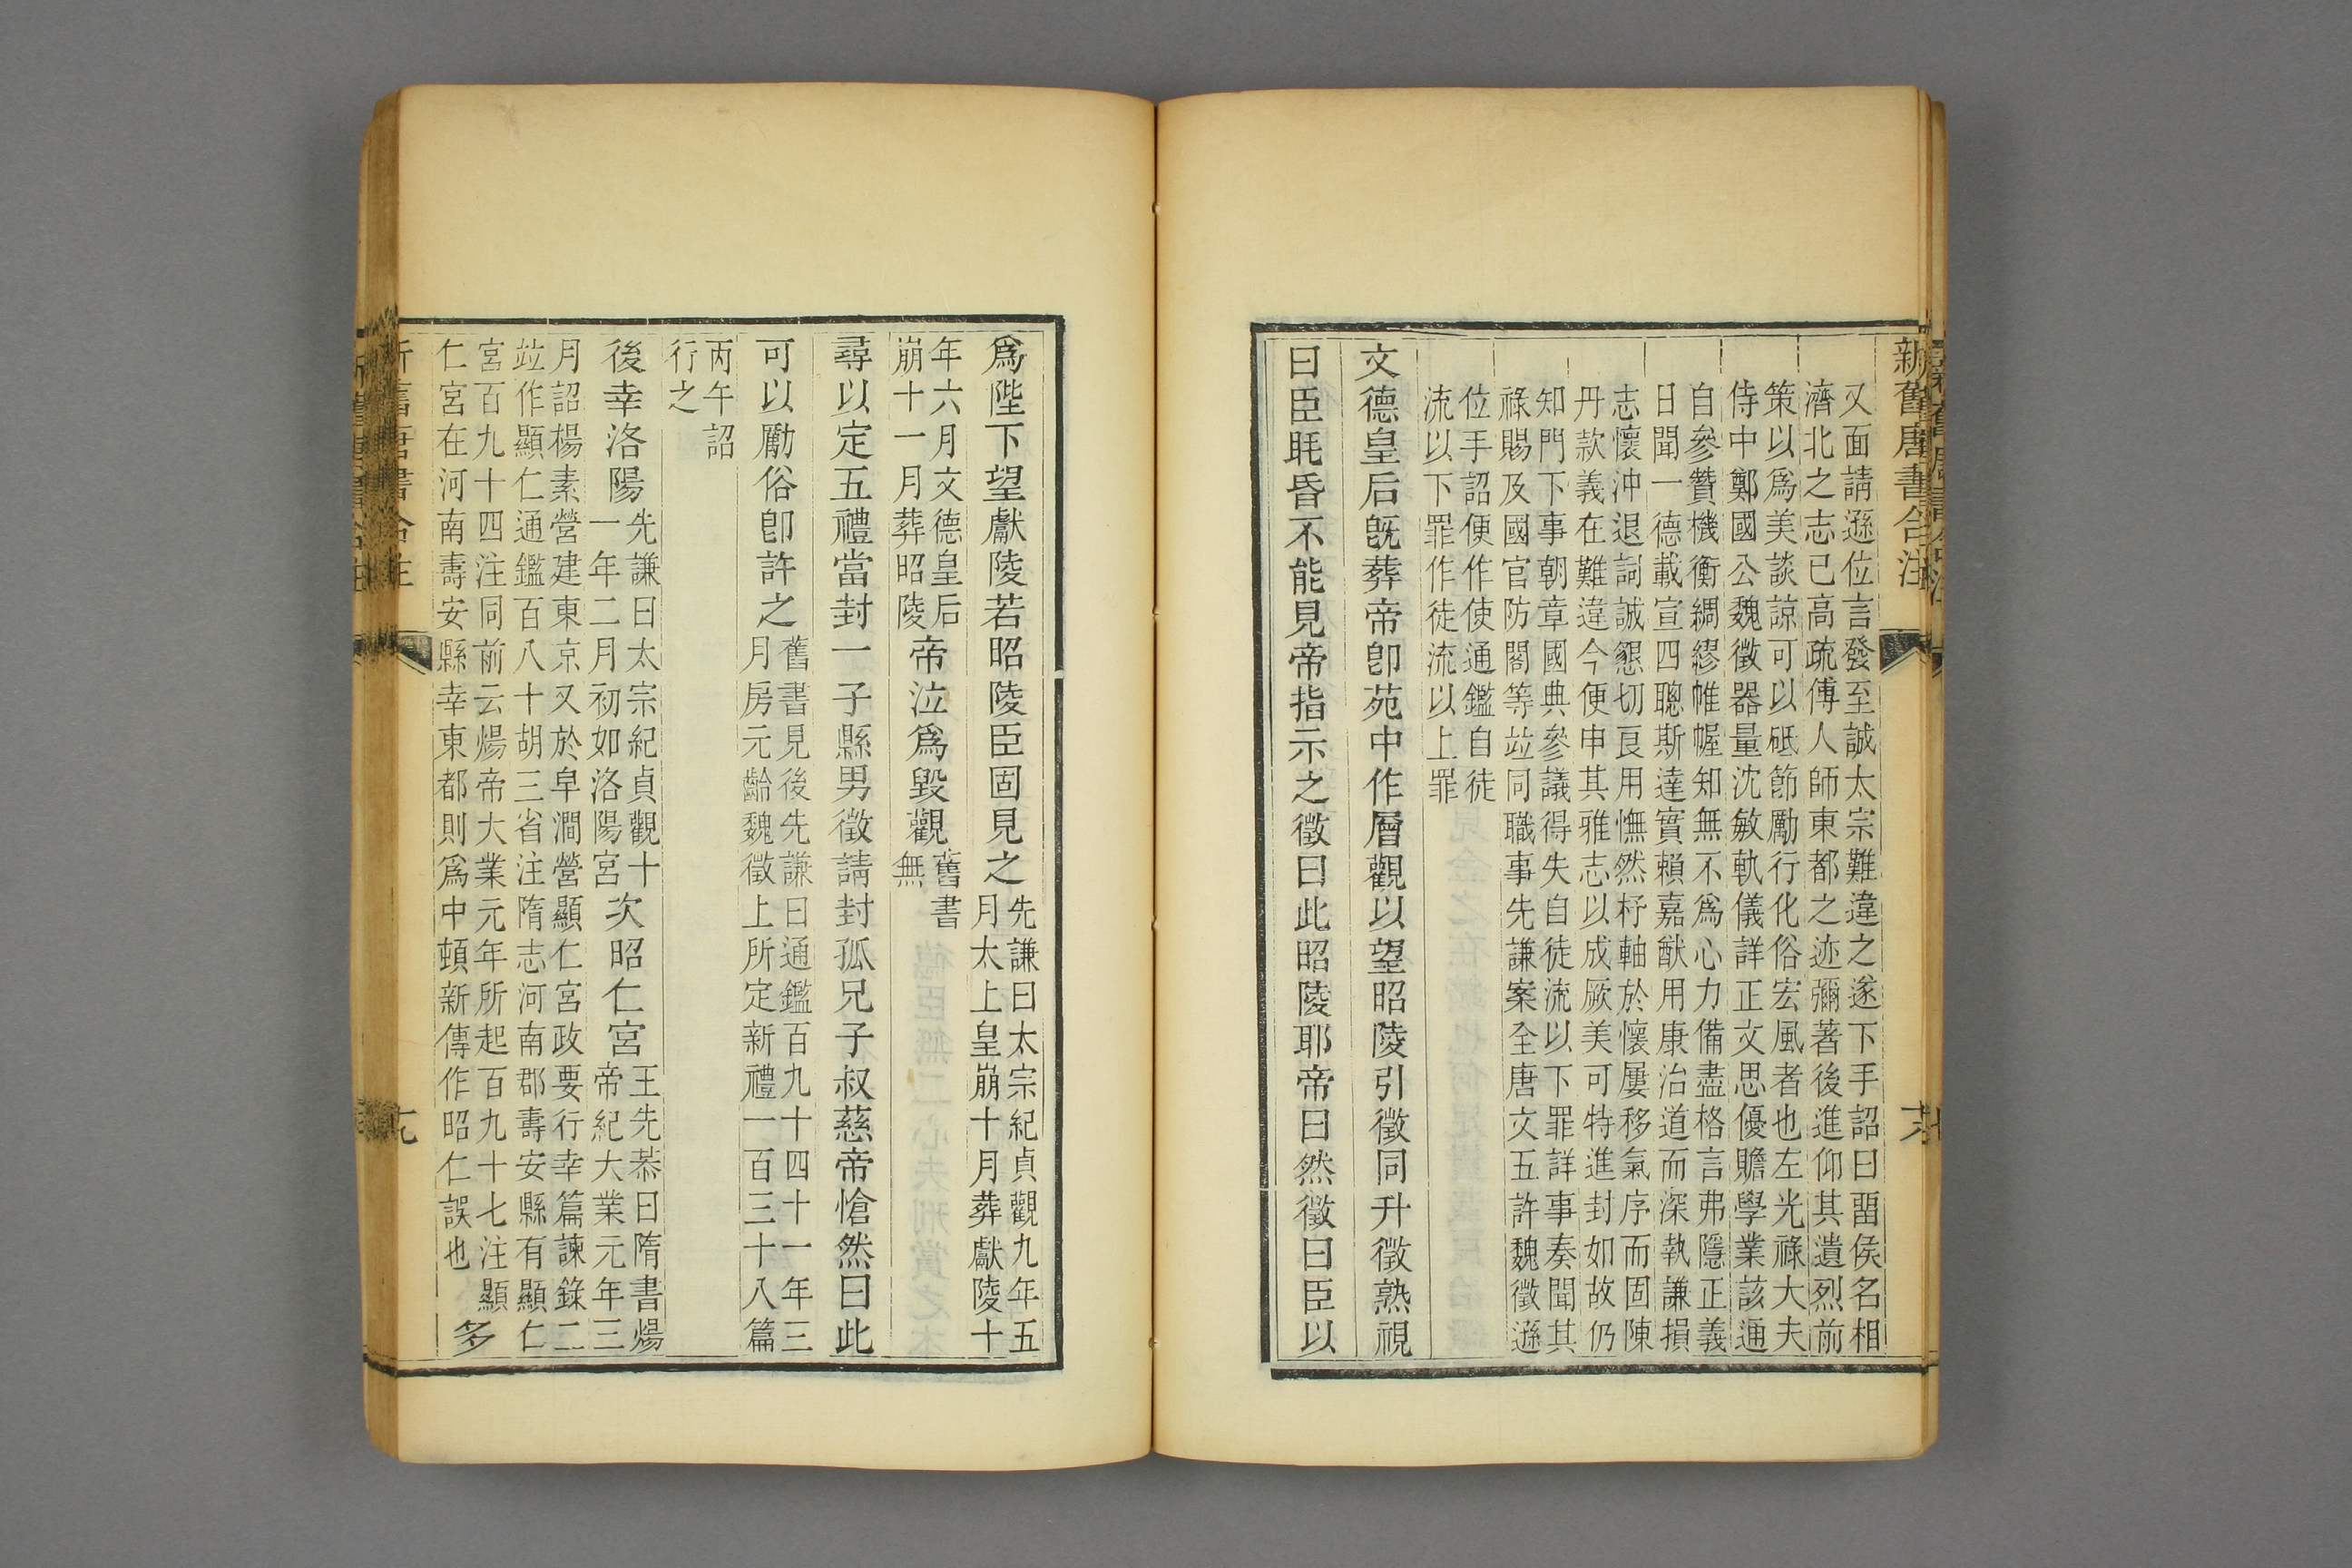 新舊唐書合注
又面請遜位言發至誠太宗難違之遂下手詔曰畱侯名相
濟北之志已高疏傅人師東都之迹彌著後進仰其遺烈前
策以爲美談諒可以砥節勵行化俗宏風者也左光祿大夫
侍中鄭國公魏徵器量沈敏軌儀詳正文思優贍學業該通
自參贊機衡綢繆帷幄知無不爲心力備盡格言弗隱正義
日聞一德載宣四聰斯達實賴嘉猷用康治道而深執謙損
志懷沖退詞誠懇切良用憮然杼軸於懷屢移氣序而固陳
丹款義在難違今便申其雅志以成厥美可特進封如故仍
知門下事朝章國典參議得失自徒流以下罪詳事奏聞其
祿賜及國官防閤等竝同職事先謙案全唐文五許魏徵遜
位手詔便作使通鑑自徒
流以下罪作徒流以上罪
文德皇后旣葬帝卽苑中作層觀以望昭陵引徵同升徵熟視
曰臣眊昏不能見帝指示之徵曰此昭陵耶帝曰然徵曰臣以
爲陛下望獻陵若昭陵臣固見之先謙曰太宗紀貞觀九年五
月太上皇崩十月葬獻陵十
年六月文德皇后
崩十一月葬昭陵帝泣爲毀觀舊書
無
尋以定五禮當封一子縣男徵請封孤兄子叔慈帝愴然曰此
可以勵俗卽許之舊書見後先謙曰通鑑百九十四十一年三
月房元齡魏徵上所定新禮一百三十八篇
丙午詔
行之
後幸洛陽先謙曰太宗紀貞觀十
一年二月初如洛陽宮次昭仁宮王先恭曰隋書煬
帝紀大業元年三
月詔楊素營建東京又於皁澗營顯仁宮政要行幸篇諫錄二
竝作顯仁通鑑百八十胡三省注隋志河南郡壽安縣有顯仁
宮百九十四注同前云煬帝大業元年所起百九十七注顯
仁宮在河南壽安縣幸東都則爲中頓新傳作昭仁誤也
多